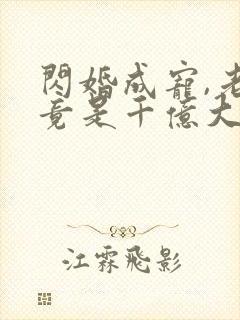 閃婚成寵,老
竟是千億大
江霖飛影